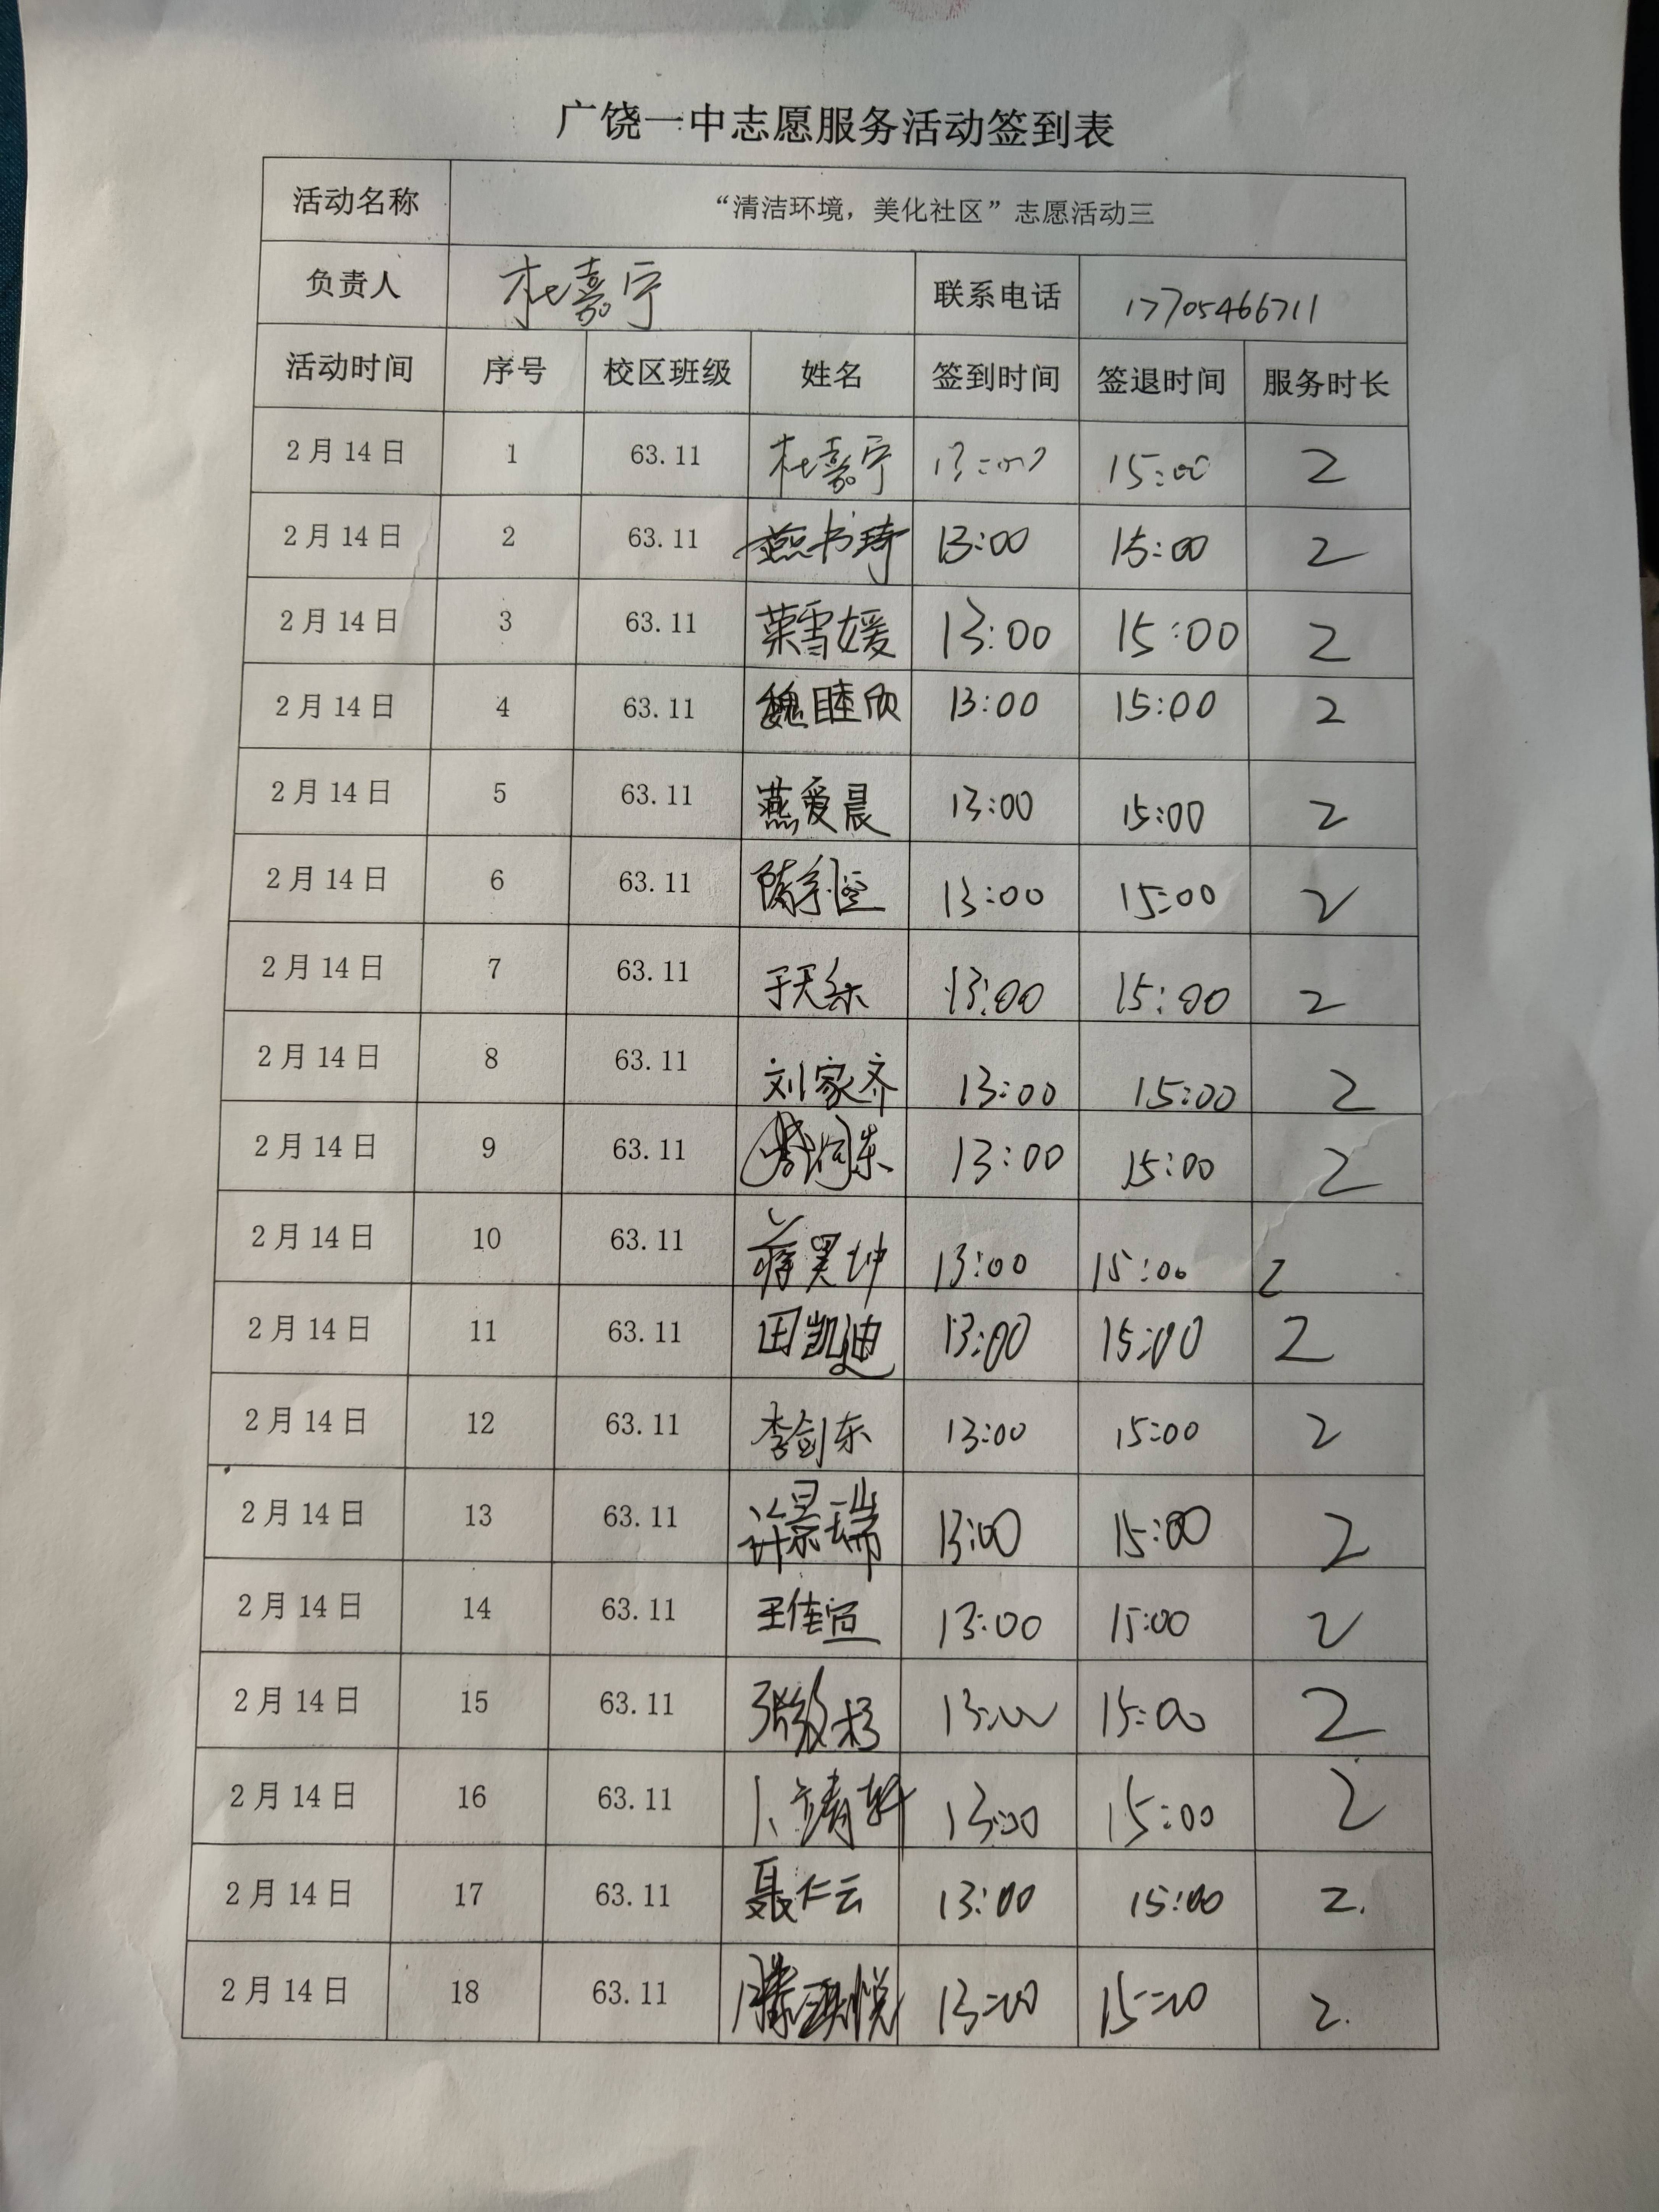 广饶一中志愿服务活动签到表
活动名称 “清洁环境，美化社区”志愿活动三
负责人 杜嘉宁 联系电话 17705466711
活动时间 序号 校区班级 姓名 签到时间 签退时间 服务时长
2月14日 1 63.11 杜嘉宁 13:00 15:00 2
2月14日 2 63.11 燕书琦 13:00 15:00 2
2月14日 3 63.11 荣雪媛 13:00 15:00 2
2月14日 4 63.11 魏睦欣 13:00 15:00 2
2月14日 5 63.11 燕爱晨 13:00 15:00 2
2月14日 6 63.11 13:00 15:00 2
2月14日 7 63.11 于天乐 13:00 15:00 2
2月14日 8 63.11 刘家齐 13:00 15:00 2
2月14日 9 63.11 李润东 13:00 15:00 2
2月14日 10 63.11 蒋昊坤 13:00 15:00 2
2月14日 11 63.11 田凯迪 13:00 15:00 2
2月14日 12 63.11 李剑东 13:00 15:00 2
2月14日 13 63.11 许景瑞 13:00 15:00 2
2月14日 14 63.11 王佳宣 13:00 15:00 2
2月14日 15 63.11 13:00 15:00 2
2月14日 16 63.11 卜靖轩 13:00 15:00 2
2月14日 17 63.11 聂仁云 13:00 15:00 2.
2月14日 18 63.11 13:00 15:00 2.